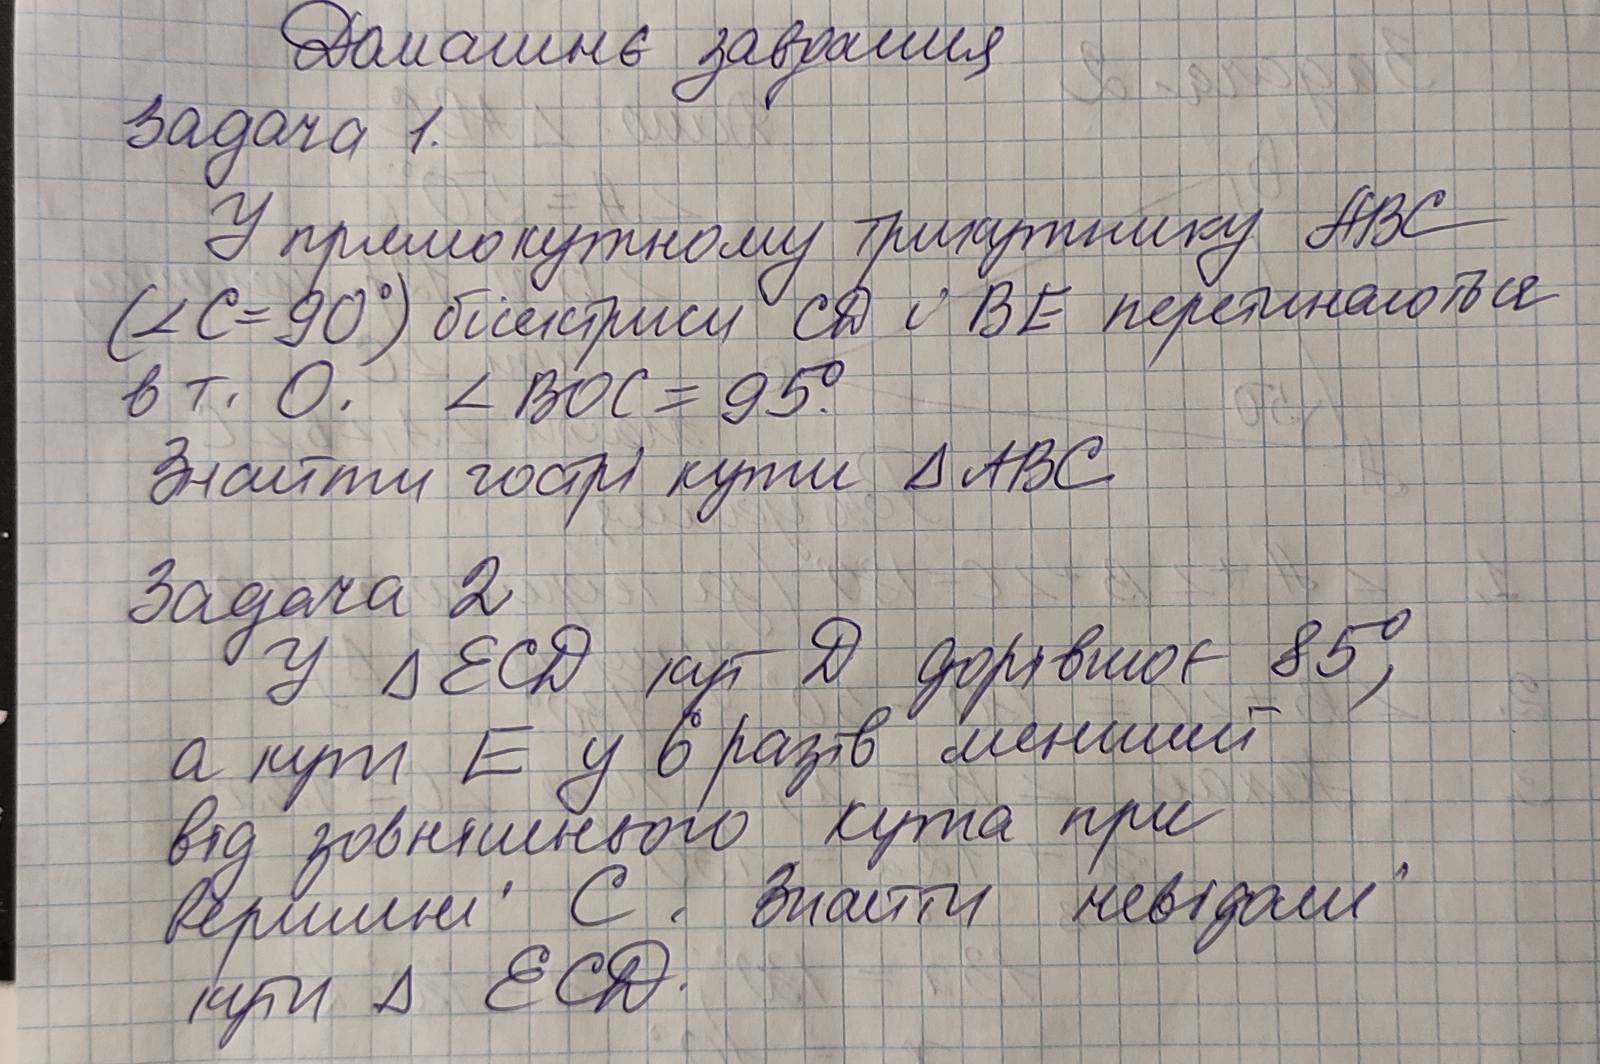 Домашнє завдання
Задача 1.
У прямокутному трикутнику ABC
(∠C=90°) бісектриси CD і BE перетинаються
в т. О. ∠BOC = 95°.
Знайти гострі кути △ABC
Задача 2
У △ECD кут D дорівнює 85°,
а кут E у 6 разів менший
від зовнішнього кута при
вершині C. Знайти невідомі
кути △ ECD.